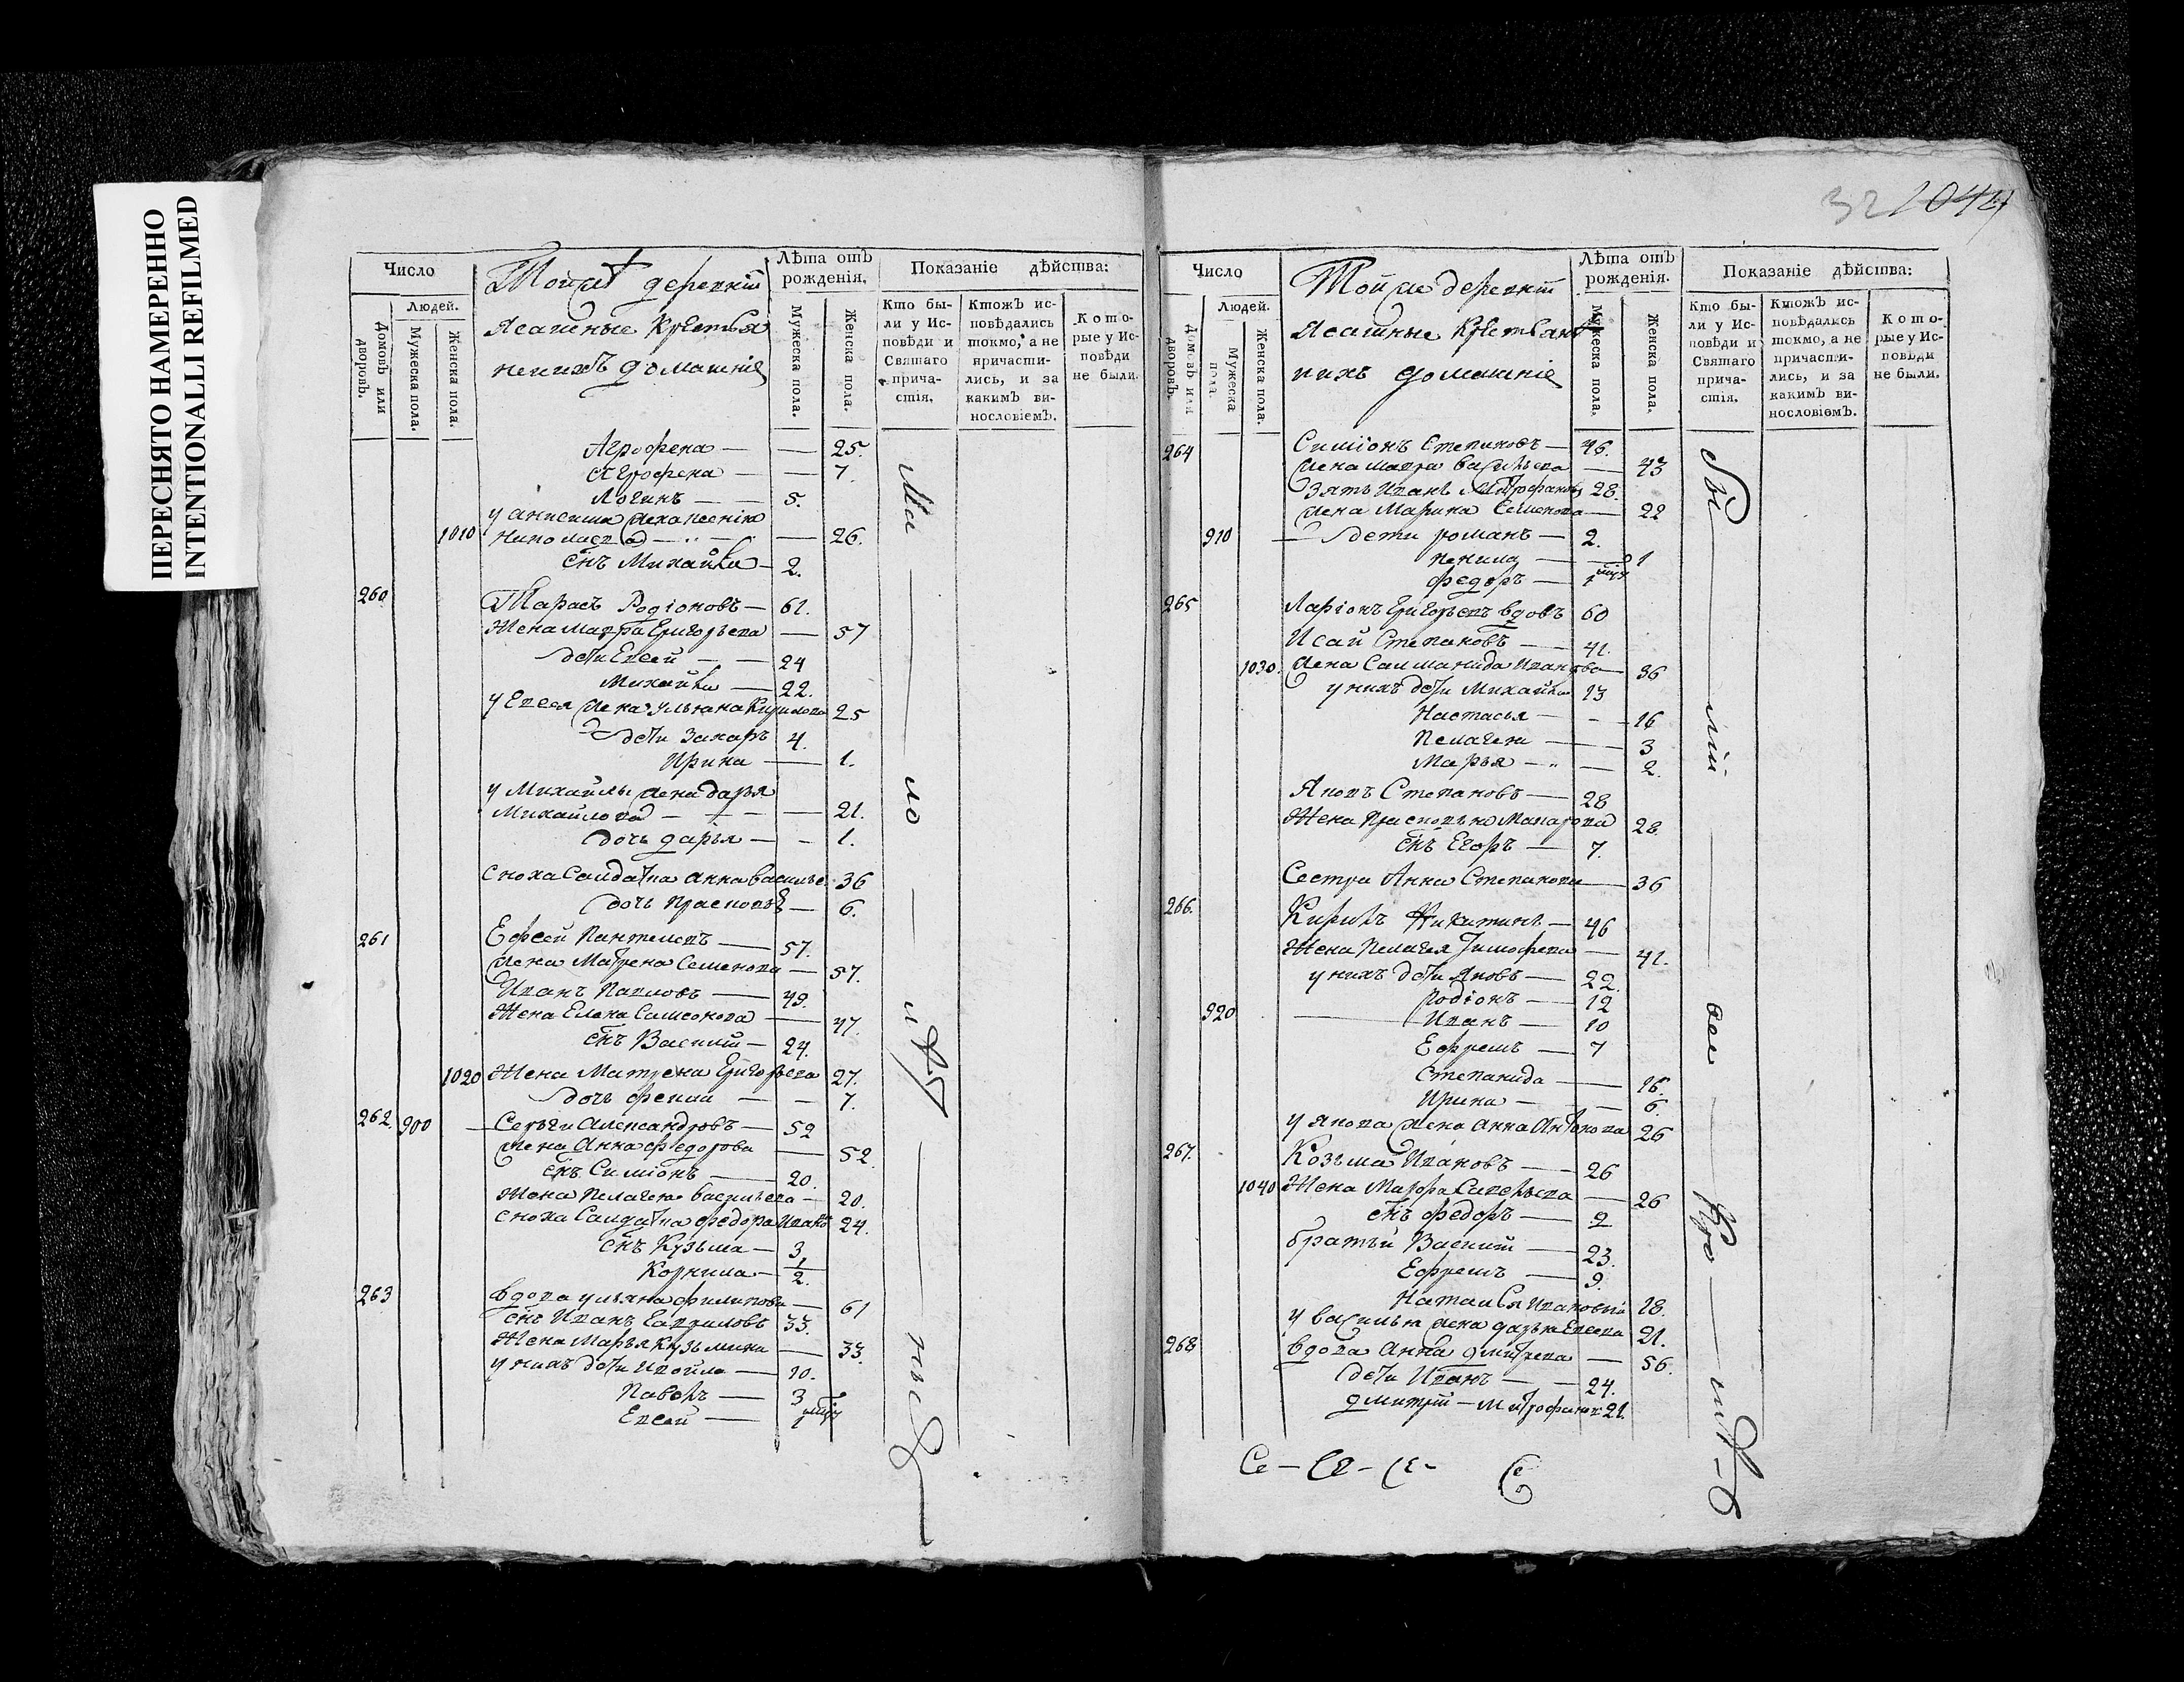 ПЕРЕСНЯТО НАМЕРЕННО
INTENTIONALLI REFILMED
Число
Людей.
Домовъ или дворовъ.
Мужеска пола.
Женска пола.
Тойже деревни
Ясашные крестья
не ихъ домашнiе
Лѣта отъ рожденiя.
Мужеска пола.
Женска пола.
Показанiе дѣйства:
Кто бы-
ли у Ис-
повѣди и
Святаго
прича-
стiя.
Ктожъ ис-
повѣдались
токмо, а не
причасти-
лись, и за
какимъ ви-
нословiемъ.
Кото-
рые у Ис-
повѣди
не были.
Агрофена — — 25.
Агрофена — — 7.
Логинъ — — 5.
у анисима жена ксенiя
1010 — — 26.
снъ Михайла — 2.
260 Тарасъ Родiоновъ — 61.
Жена Мавра Григорьева — 57
дети Евсей — — 24
Михайла — 22.
у Евсея жена ульяна Кирилова 25
дети Захаръ 4.
Ирина — 1.
у Михайлы жена дарья
Михайлова — — — 21.
дочь дарья — - 1.
сноха Салдатка анна василье: 36
дочь Прасковья — 6.
261 Ефсей Пантелевъ — 57.
жена Матрена Семенова — 57.
Иванъ Павловъ — 49.
Жена Елена Самсонова — 47.
снъ Василий — 24.
1020 Жена Матрена Григорьева 27.
дочь — - 7.
262. 900 — Сергей Александровъ — 52
жена Анна федорова — 52.
снъ Симiонъ — 20.
Жена Пелагея васильева — 20.
сноха Салдатка федора Иван 24.
снъ Кузьма — 3
Корнила — 1/2.
263 вдова ульяна филипова — 61
снъ Иванъ Гавриловъ 33.
Жена Марья Кузьмина — 33.
у нихъ дети — 10.
Павелъ — 3
Евсей —
Ма — ло — — нъ
32 1044
Число
Людей.
Домовъ или дворовъ.
Мужеска пола.
Женска пола.
Той же деревни
Ясашные Крестьяне
ихъ домашнiе
Лѣта отъ рожденiя.
Мужеска пола.
Женска пола.
Показанiе дѣйства:
Кто бы-
ли у Ис-
повѣди и
Святаго
прича-
стiя.
Ктожъ ис-
повѣдались
токмо, а не
причасти-
лись, и за
какимъ ви-
нословiемъ.
Кото-
рые у Ис-
повѣди
не были.
264 Симiонъ Степановъ — 46.
жена Мавра васильева — 43
Зять Иванъ Митрофановъ 28.
жена Марина Семенова — 22
910 — дети романъ — 2.
— 1
федоръ —
265 Ларiонъ Григорьевъ вдовъ 60
Исай Степановъ — — 41.
1030. жена Саламанида Иванова — 36
у нихъ дети Михайла 13
Настасья — - - 16
Пелагея — — 3
Марья — — 2.
Яковъ Степановъ — 28
Жена Прасковья Макарова 28.
снъ Егоръ — 7.
Сестра Анна Степанова — 36
266. Кирилъ Никитинъ — 46
Жена Пелагея Тимофева — 41.
у нихъ дети Яковъ — 22.
Родiонъ — 12
920 — Иванъ — 10
Ефремъ — 7
Степанида — 16.
Ирина — — 6.
у Якова жена анна Антонова 26
267. Козьма Ивановъ — 26
1040 Жена Марфа Савельева — 26
снъ федоръ — 2
братьи Василий — 23.
Ефремъ — 9.
Наталья Ивановна 18.
у василья жена дарья Евсева 21.
268 вдова Анна дмитрева — 56.
дети Иванъ — — 24.
дмитрiй — Митрофановъ 21.
Се — Се — Се — Се